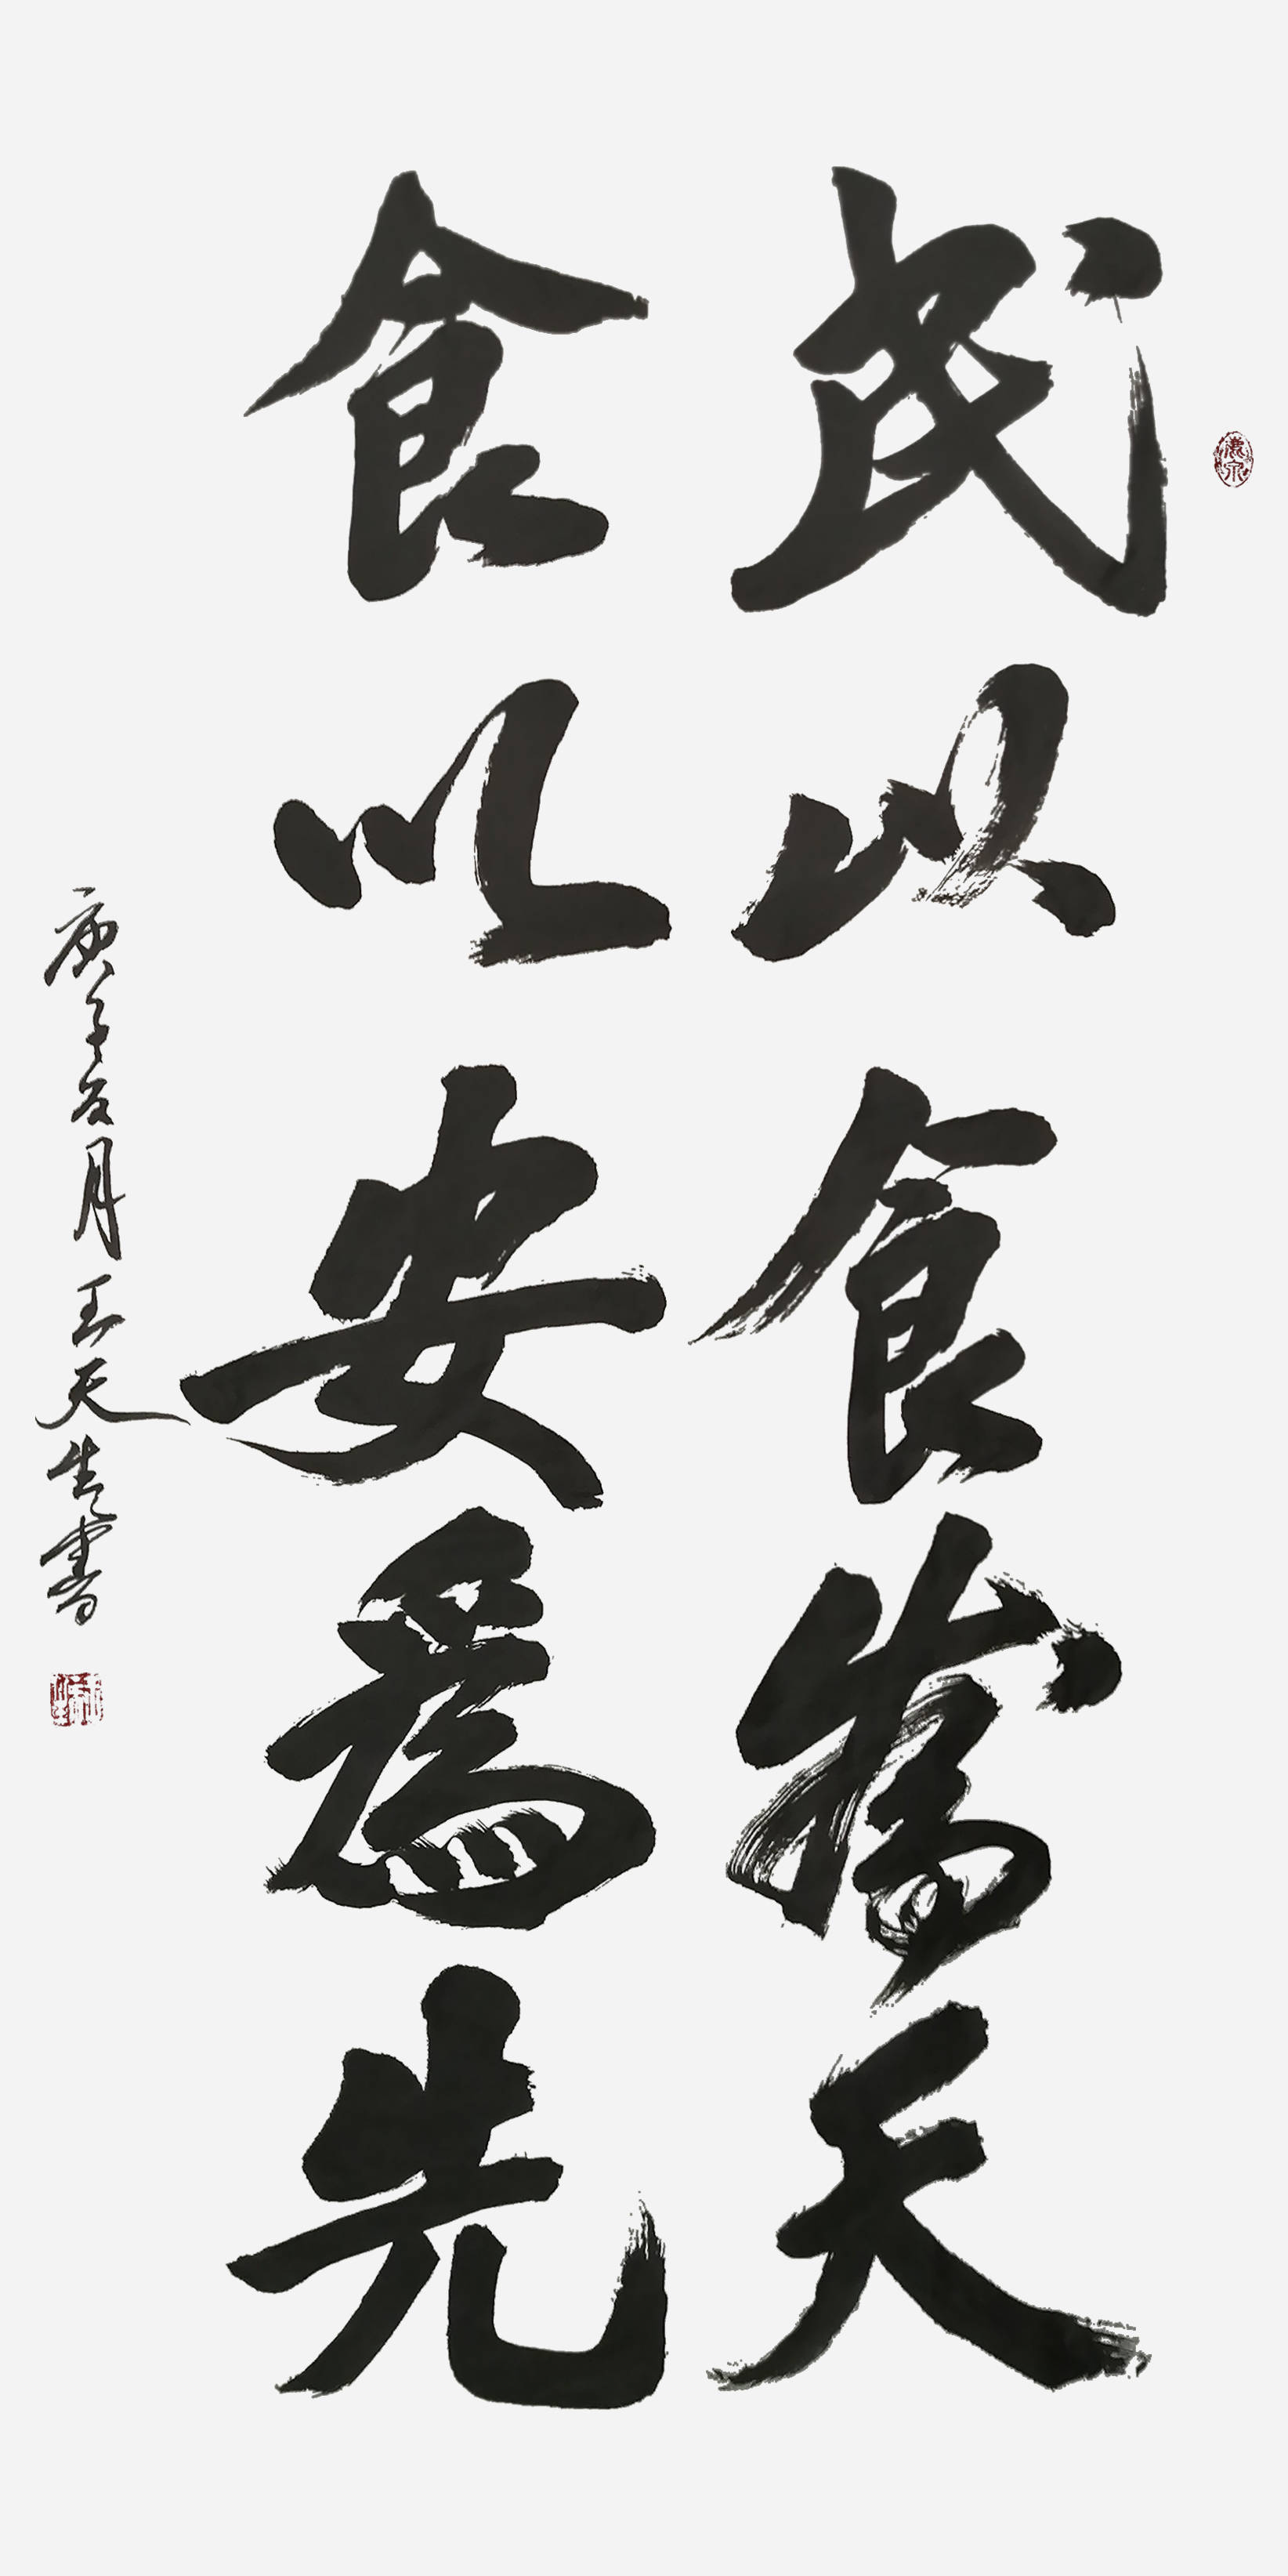 民以食為天
食以安爲先
庚子夏月王天生書